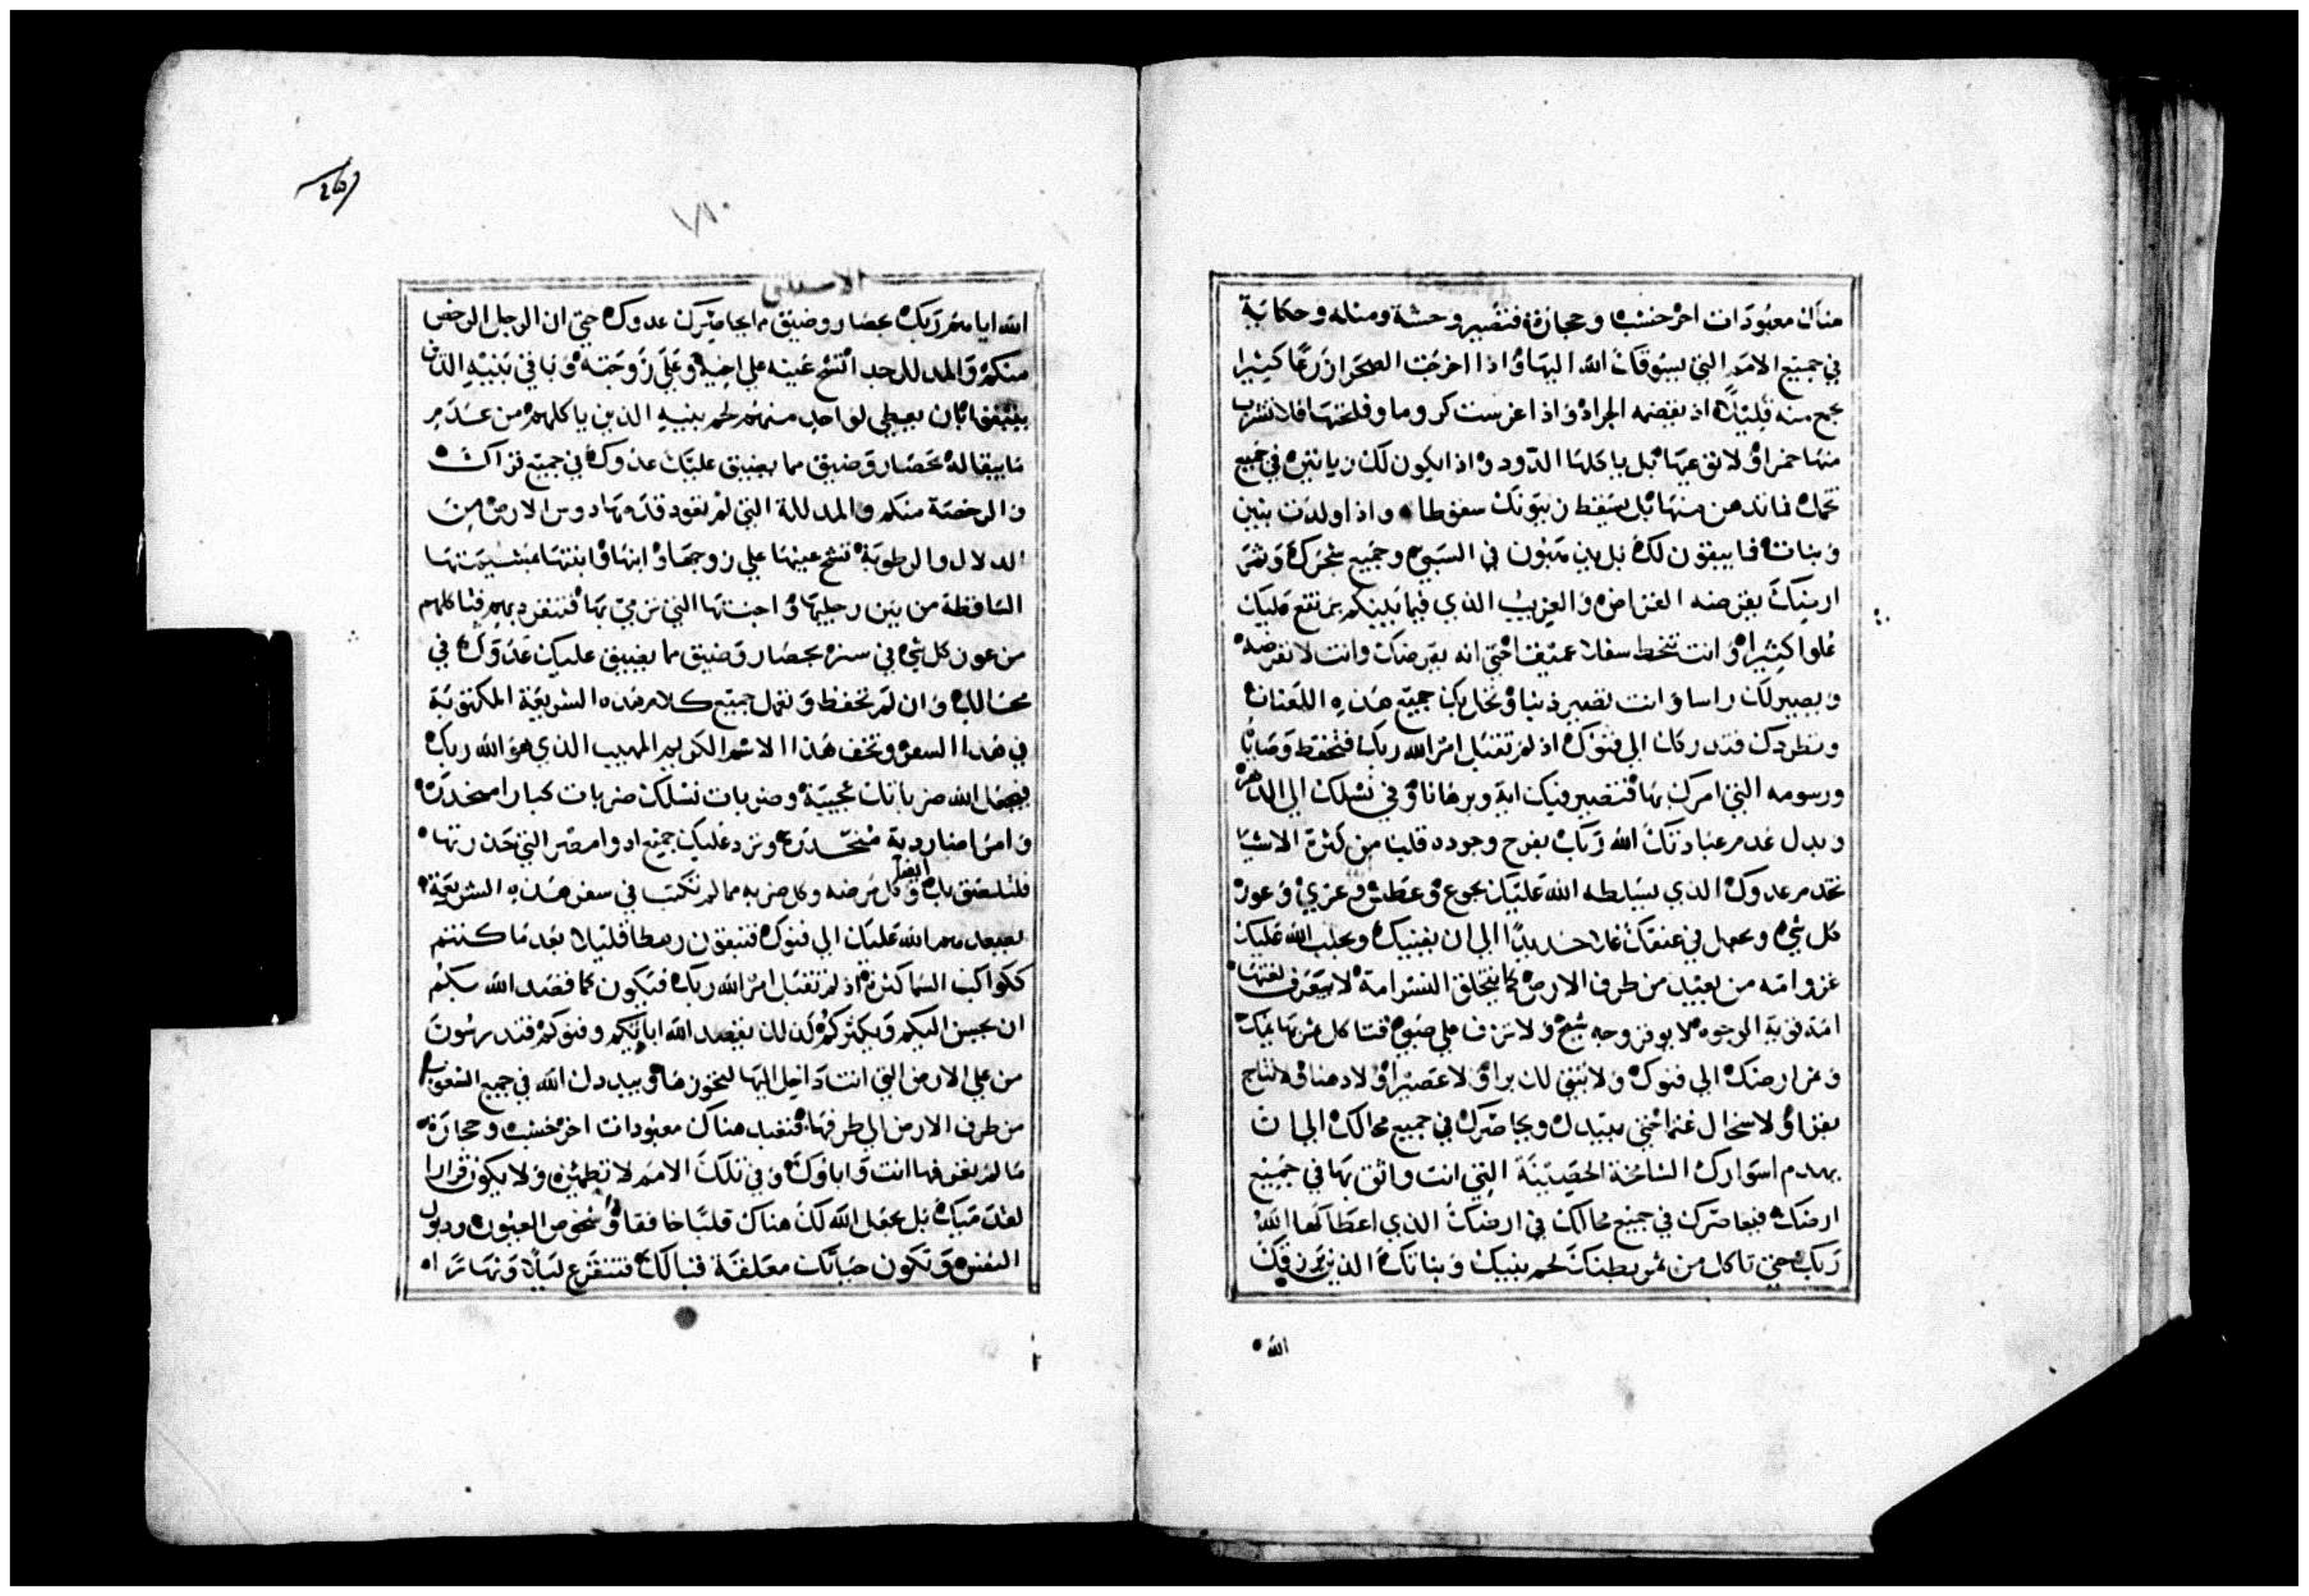 هناك معبودات اخر خشب وحجارة فتصير وحشة ومثله وحكاية
في جميع الامم التي يسوقك الله اليها واذا اخرجت الصحرا زرعا كثيرا
تجمع منه قليلا اذ يقضمه الجراد واذا غرست كروما وفلحتها فلا تشرب
منها خمرا ولا توعيها بل ياكلها الدود واذا يكون لك زيا تين في جميع
تخمك فما تدهن منها بل يسقط زيتونك سقوطا واذا اولدت بنين
وبنات فما يبقون لك بل يمنون في السبي وجميع شجرك وثمر
ارضك يقرضه القراض والغريب الذي فيما بينكم يرتفع عليك
علوا كثيرا وانت تنحط سفلا عميقا حتي انه يقرضك وانت لا تقرضه
ويصير لك راسا وانت تصير ذنبا وتحل بك جميع هذه اللعنات
وتطردك فتدركك الي فنوك اذ لم تقبل امر الله ربك فتحفظ وصاياه
ورسومه التي امرك بها فتصير فيك اية وبرهانا وفي نسلك الي الدهر
وبدل عدم عبادتك الله ربك بفرح وجوده قلب من كثرة الاشيا
تخدم عدوك الذي يسلطه الله عليك بجوع وعطش وعري وعوز
كل شي ويجعل في عنقك غلا حديدا الي ان يفنيك ويجلب الله عليك
غزو امه من بعيد من طرف الارض كما يتحلق النسر امة لا تعرف لغتها
امة قوية الوجوه لا يوقر وجه شيخ ولا تراف علي صبي فتاكل ثمر بهايمك
وثمر ارضك الي فنوك ولا تبقي لك برا ولا عصيرا ولا دهنا ولا نتاج
بقر ولا سخال غنم حتي تبيدك ويحاصرك في جميع محالك الي ان
يهدم اسوارك الشامخة الحصينة التي انت واثق بها في جميع
ارضك فيحاصرك في جميع محالك في ارضك الذي اعطاكها الله
ربك حتي تاكل من ثمر بطنك لحم بنيك وبناتك الذين رزقك
الله
٧١٠
الاستثنى
الله اياهم ربك بحصار وضيق ما يحاصرك عدوك حتي ان الرجل الرخص
منكم والمدلل جدا تشح عينه علي اخيه وعلي زوجته وباقي بنيه الذين
يبقيهم بان يعطي لواحد منهم لحم بنيه الذين ياكلهم من عدم
ما يبقا له بحصار وضيق مما يضيق عليك عدوك في جميع قراك
والرخصة منكم والمدللة التي لم تعود قدمها دوس الارض من
الدلال والرطوبة تشح عينها علي زوجها وابنها وابنتها بمشيمتها
الساقطة من بين رجليها واجنتها التي ترمي بها فتنفرد بهم فتاكلهم
من عوز كل شي في ستر بحصار وضيق مما يضيق عليك عدوك في
محالك وان لم تحفظ وتعمل جميع كلام هذه الشريعة المكتوبة
في هذا السفر وتخف هذا الاسم الكريم المهيب الذي هو الله ربك
فيجعل الله ضرباتك عجيبة وضربات نسلك ضربات كبارا متخددة
وامراضا ردية متخددة ويرد عليك جميع ادوا مصر التي حذرتها
فتلصق بك وايضا كل مرضه وكل ضربه مما لم تكتب في سفر هذه الشريعة
يصعدهم الله عليك الي فنوك فتبقون رهطا قليلا بعد ما كنتم
ككواكب السما كثرة اذ لم تقبل امر الله ربك فيكون كما قصد الله بكم
ان يحسن اليكم ويكثركم كذلك يقصد الله ابادتكم وفنوكم فتدرسون
من علي الارض التي انت داخل اليها لتحوزها ويبددك الله في جميع الشعوب
من طرف الارض الي طرفها فتعبد هناك معبودات اخر خشب وحجارة
ما لم يعرفها انت واباوك وفي تلك الامم لا تطمئن ولا يكون قرارا
لقدميك بل يجعل الله لك هناك قلبا خافقا وشخوص العيون وذبول
النفس وتكون حياتك معلقة قبالك فتفزع ليلا ونهارا